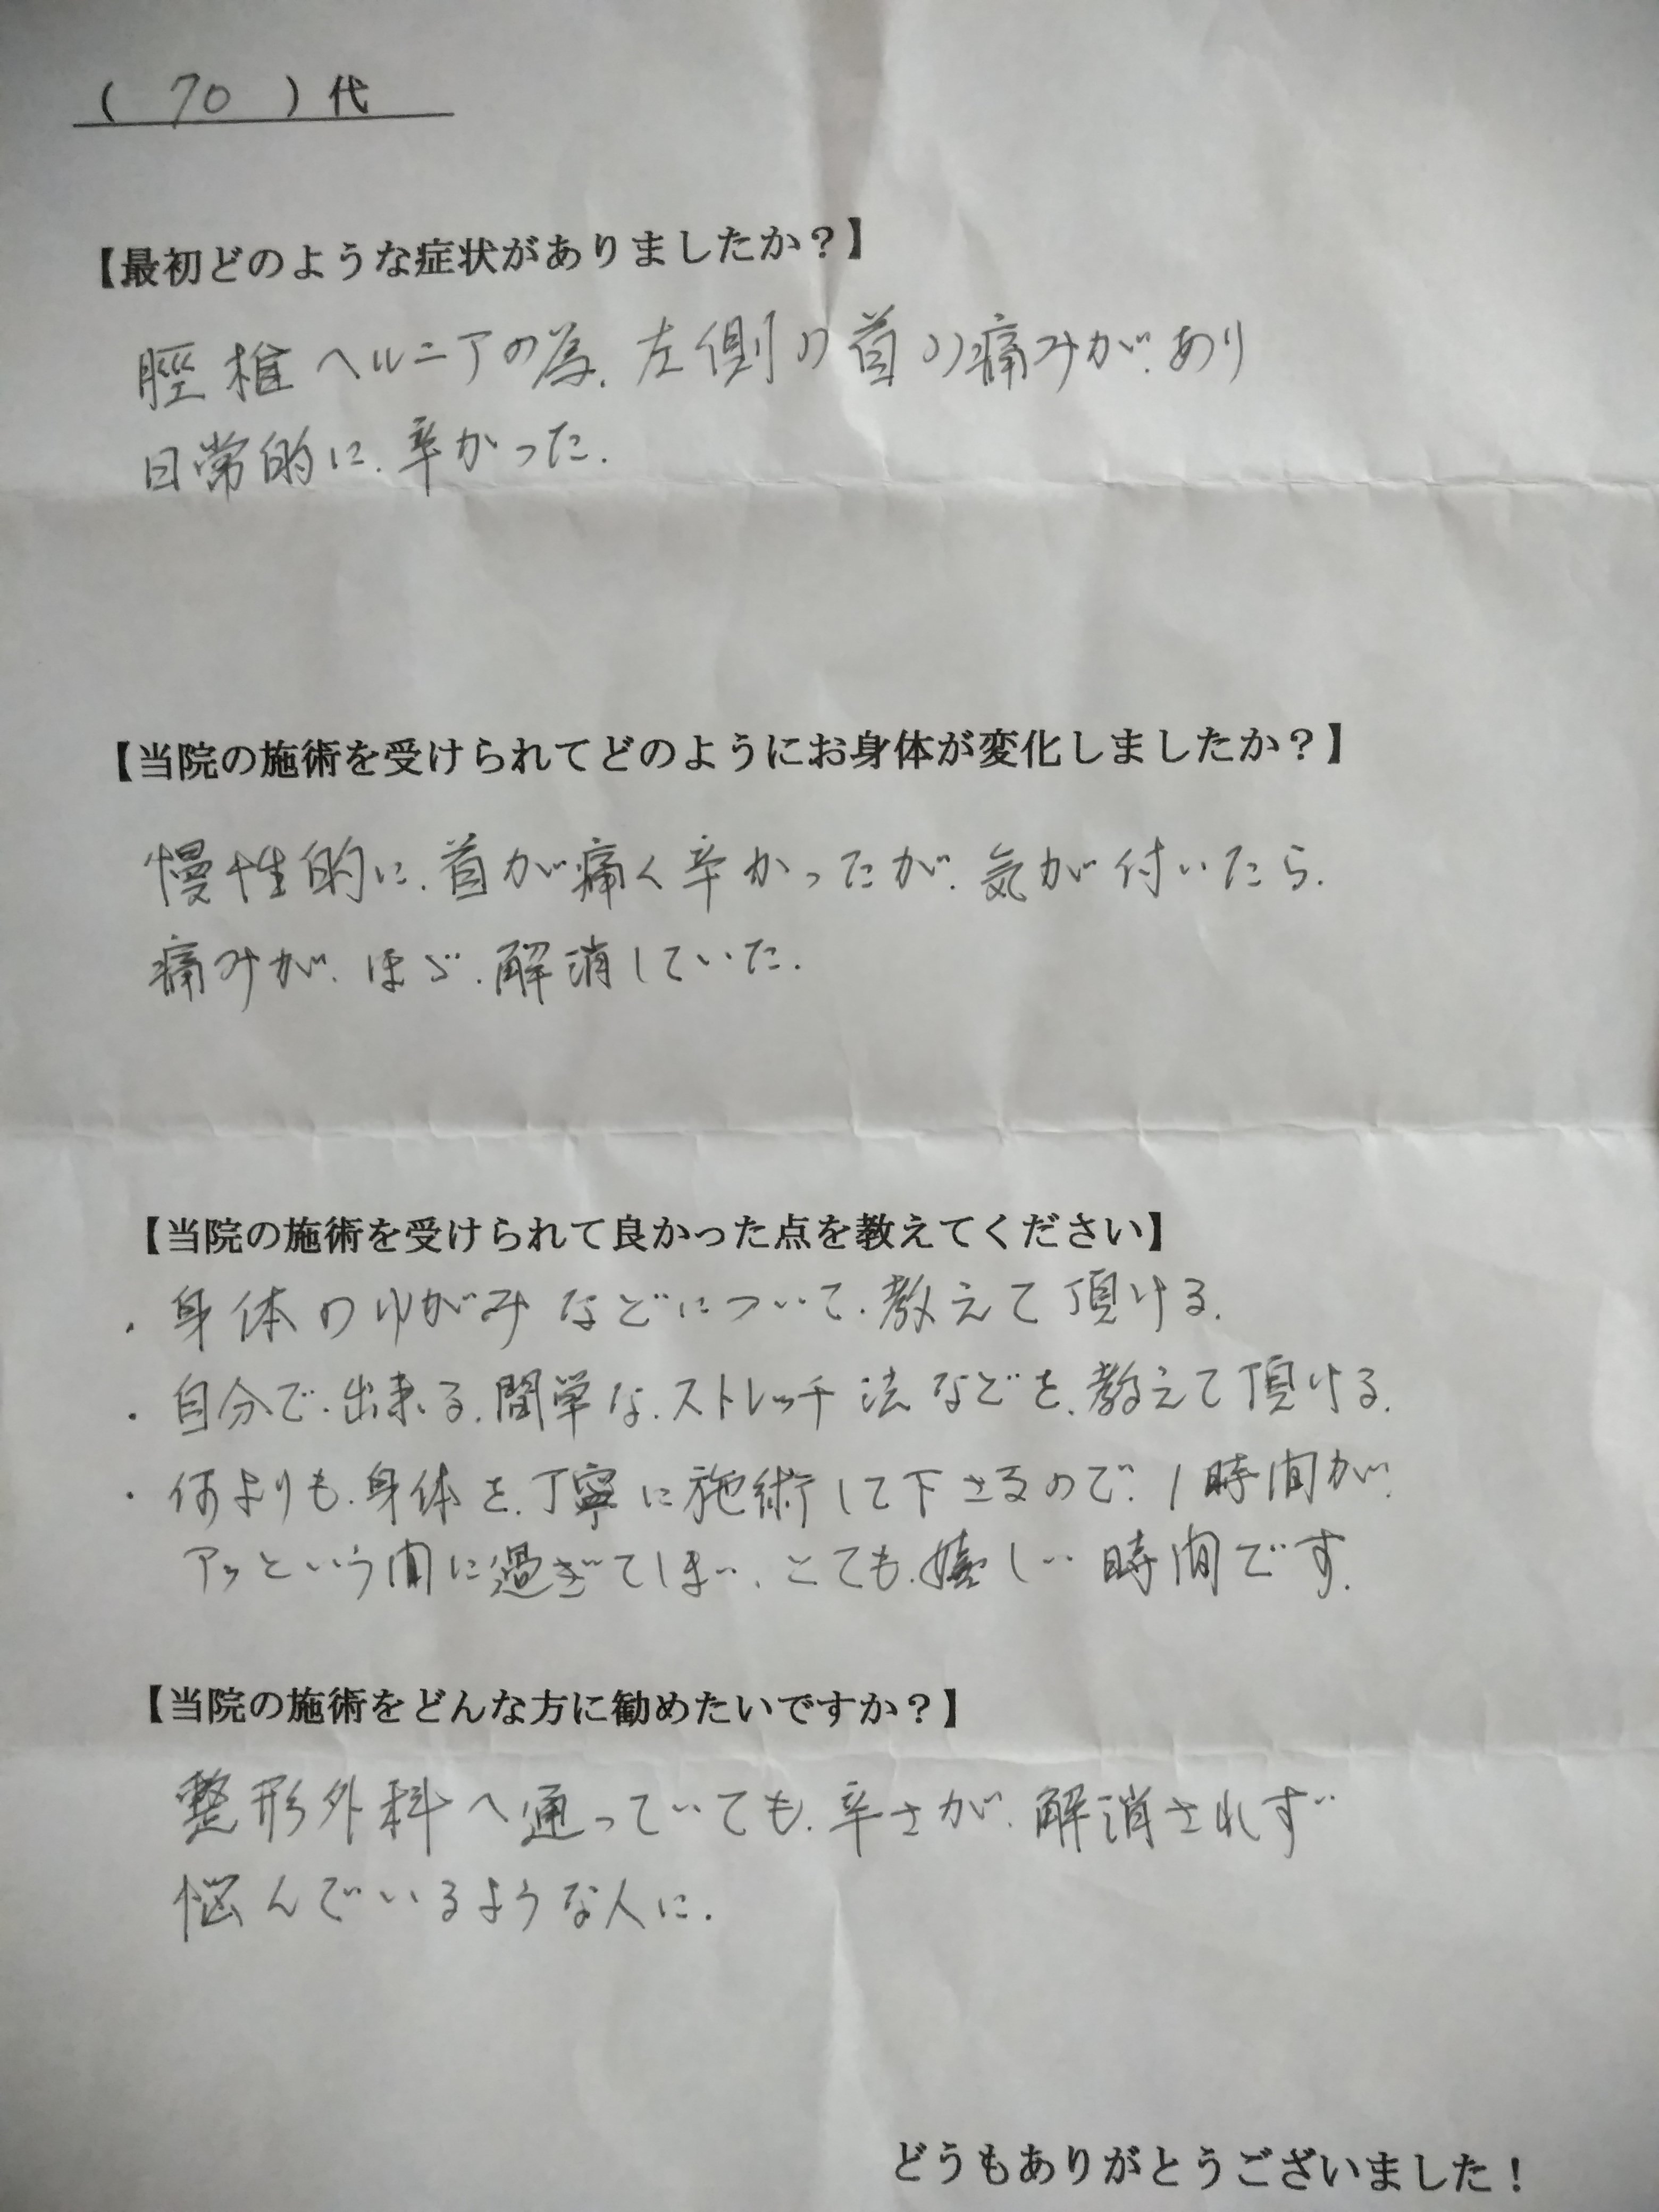 （ 70 ）代
【最初どのような症状がありましたか？】
脛椎ヘルニアの為、左側の首の痛みが、あり
日常的に、辛かった。
【当院の施術を受けられてどのようにお身体が変化しましたか？】
慢性的に、首が痛く辛かったが、気が付いたら、
痛みが、ほぶ、解消していた。
【当院の施術を受けられて良かった点を教えてください】
・身体のゆがみなどについて、教えて頂ける。
・自分で、出来る、簡単な、ストレッチ法などを、教えて頂ける。
・何よりも、身体を、丁寧に施術して下さるので、1時間が、
アッという間に過ぎてしまい、とても、嬉しい時間です。
【当院の施術をどんな方に勧めたいですか？】
整形外科へ通っていても、辛さが、解消されず
悩んでいるような人に。
どうもありがとうございました！